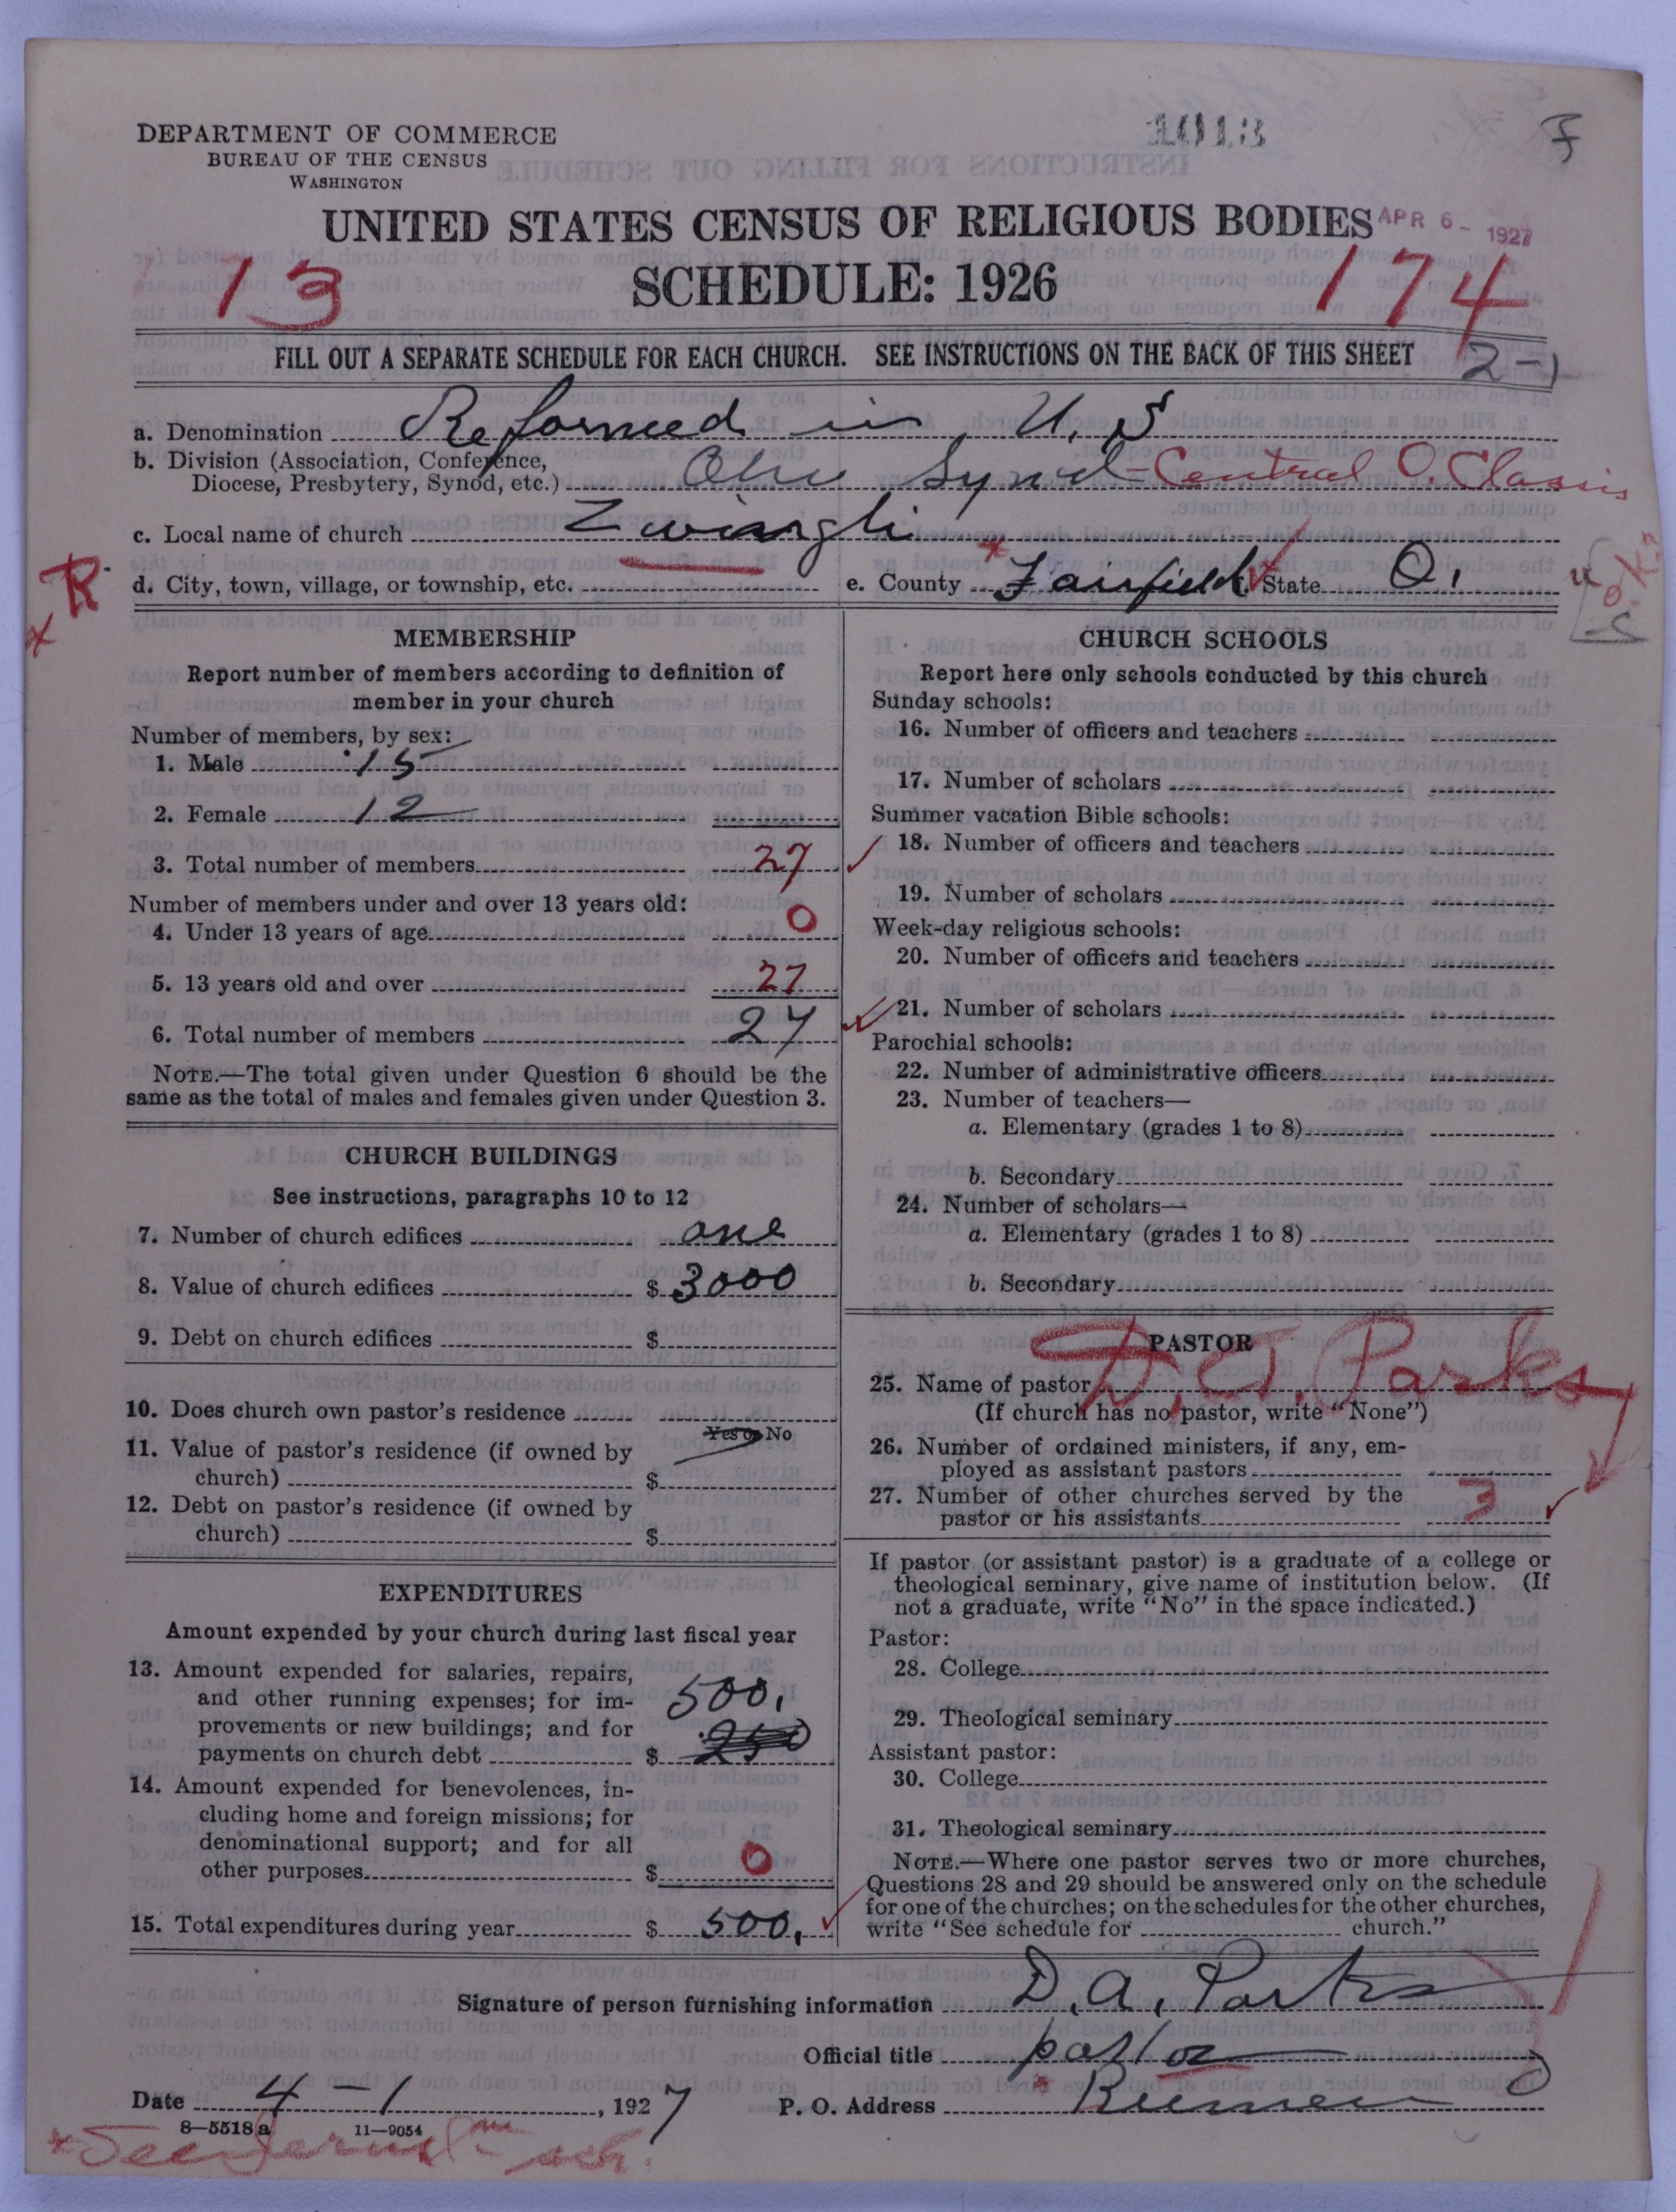 1013
DEPARTMENT OF COMMERCE
BUREAU OF THE CENSUS
WASHINGTON
UNITED STATES CENSUS OF RELIGIOUS BODIES
APR 6 - 1927
13
SCHEDULE: 1926
174
FILL OUT A SEPARATE SCHEDULE FOR EACH CHURCH. SEE INSTRUCTIONS ON THE BACK OF THIS SHEET
2-1
a. Denomination Reformed in U. S
b. Division (Association, Conference,
Diocese, Presbytery, Synod, etc.) Ohio Synod - Central O. Classis
c. Local name of church Zwingli
R
d. City, town, village, or township, etc. e. County Fairfield State O.
O.K.
MEMBERSHIP
Report number of members according to definition of
member in your church
Number of members, by sex:
1. Male 15
2. Female 12
3. Total number of members 27
Number of members under and over 13 years old:
4. Under 13 years of age 0
5. 13 years old and over 27
6. Total number of members 27
NOTE.—The total given under Question 6 should be the
same as the total of males and females given under Question 3.
CHURCH BUILDINGS
See instructions, paragraphs 10 to 12
7. Number of church edifices one
8. Value of church edifices $ 3000
9. Debt on church edifices $
10. Does church own pastor's residence
Yes or No
11. Value of pastor's residence (if owned by
church) $
12. Debt on pastor's residence (if owned by
church) $
EXPENDITURES
Amount expended by your church during last fiscal year
13. Amount expended for salaries, repairs,
and other running expenses; for im-
provements or new buildings; and for
payments on church debt $ 500. 250
14. Amount expended for benevolences, in-
cluding home and foreign missions; for
denominational support; and for all
other purposes $ 0
15. Total expenditures during year $ 500.
CHURCH SCHOOLS
Report here only schools conducted by this church
Sunday schools:
16. Number of officers and teachers
17. Number of scholars
Summer vacation Bible schools:
18. Number of officers and teachers
19. Number of scholars
Week-day religious schools:
20. Number of officers and teachers
21. Number of scholars
Parochial schools:
22. Number of administrative officers
23. Number of teachers—
a. Elementary (grades 1 to 8)
b. Secondary
24. Number of scholars—
a. Elementary (grades 1 to 8)
b. Secondary
PASTOR
25. Name of pastor D. A. Parks
(If church has no pastor, write "None")
26. Number of ordained ministers, if any, em-
ployed as assistant pastors
27. Number of other churches served by the
pastor or his assistants 3
If pastor (or assistant pastor) is a graduate of a college or
theological seminary, give name of institution below. (If
not a graduate, write "No" in the space indicated.)
Pastor:
28. College
29. Theological seminary
Assistant pastor:
30. College
31. Theological seminary
NOTE.—Where one pastor serves two or more churches,
Questions 28 and 29 should be answered only on the schedule
for one of the churches; on the schedules for the other churches,
write "See schedule for church."
Signature of person furnishing information D. A. Parks
Official title pastor
Date 4 - 1, 1927 P. O. Address Bremen O
8—5518 a 11—9054